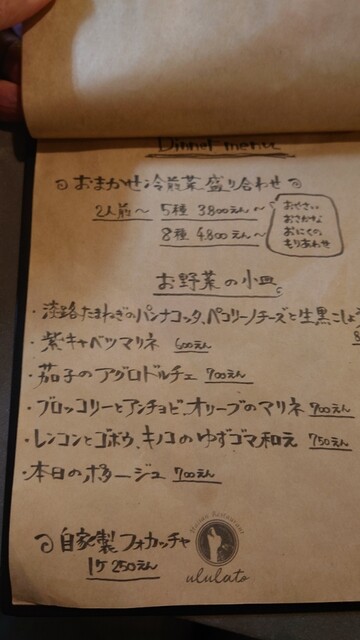 Dinner menu
おまかせ冷前菜盛り合わせ
2人前〜 5種 3.800えん〜
8種 4.800えん〜
おやさい
おさかな
おにくの
もりあわせ
お野菜の小皿
・淡路たまねぎのパンナコッタ、ペコリーノチーズと生黒こしょう
・紫キャベツマリネ 600えん
・茄子のアグロドルチェ 700えん
・ブロッコリーとアンチョビ、オリーブのマリネ 700えん
・レンコンとゴボウ、キノコのゆずゴマ和え 750えん
・本日のポタージュ 700えん
自家製フォカッチャ
1ケ 250えん
ululato